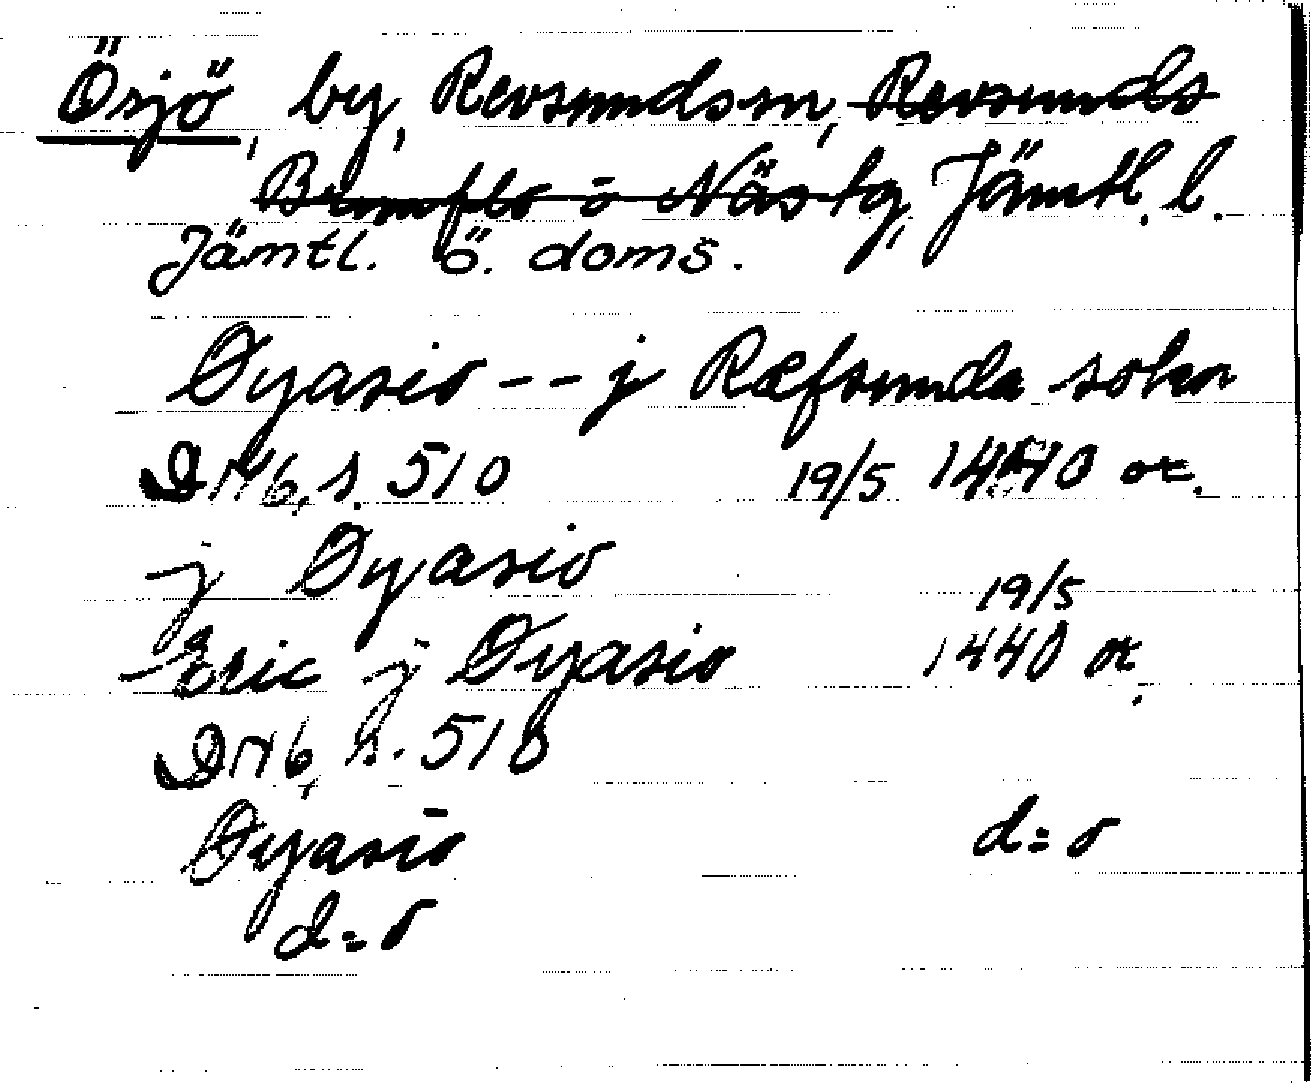 Ösjö, by, Revsunds sn, Revsunds
Brunflo o Näs tg, Jämtl. l.
Jämtl. ö. doms.
Øyasio -- j Ræfsunda sokn
DN 16, s. 510 19/5 1440 or.
j Øyasio 19/5
Eric j Øyasio 1440 or.
DN 16, s. 510
Øyasio d:o
d:o